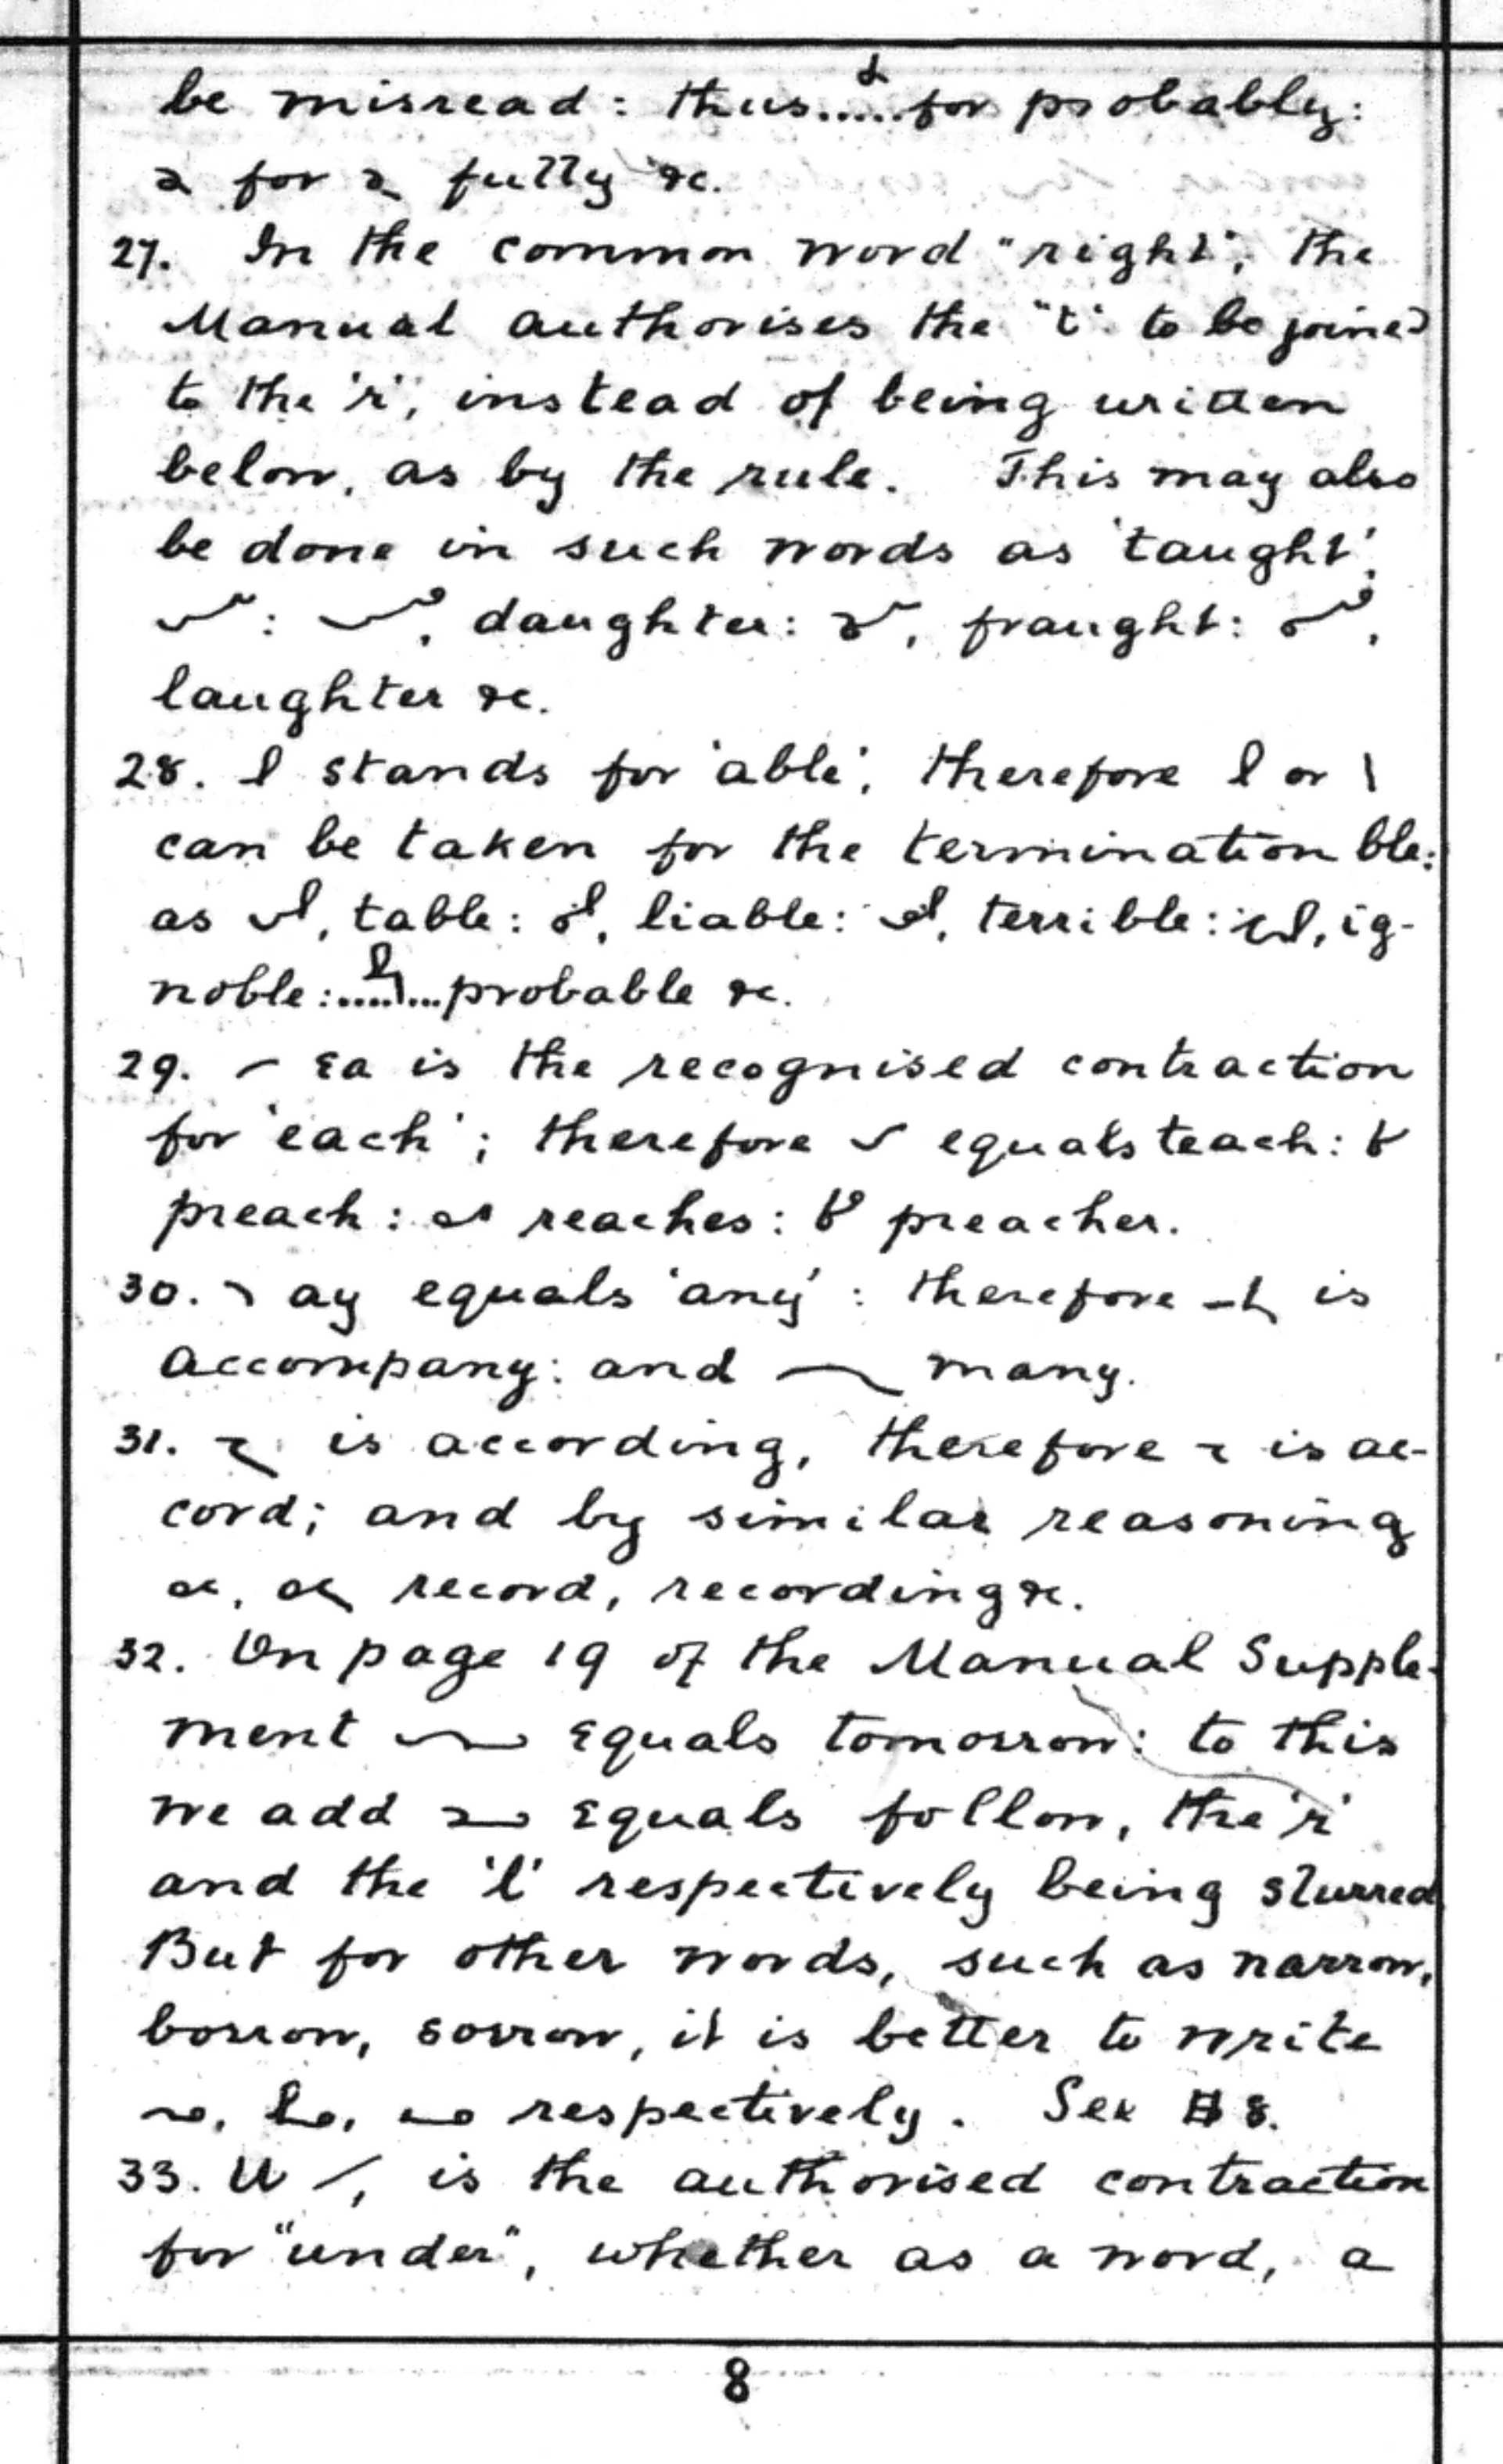 be misread: thus..... for probably:
for fully &c.
27. In the common word "right", the
Manual authorises the "t" to be joined
to the 'r', instead of being written
below, as by the rule. This may also
be done in such words as 'taught',
: , daughter: , fraught: ,
laughter &c.
28. stands for 'able', therefore or
can be taken for the termination ble:
as , table: , liable: , terrible: , ig-
noble:........probable &c.
29. Ea is the recognised contraction
for 'each'; therefore equals teach:
preach: reaches: preacher.
30. ay equals 'any': therefore is
accompany: and many.
31. is according, therefore is ac-
cord; and by similar reasoning
, record, recording &c.
32. On page 19 of the Manual Supple-
ment equals tomorrow: to this
we add equals follow, the 'r'
and the 'l' respectively being slurred
But for other words, such as narrow,
borrow, sorrow, it is better to write
, , respectively. See 8.
33. U , is the authorised contraction
for "under", whether as a word, a
8